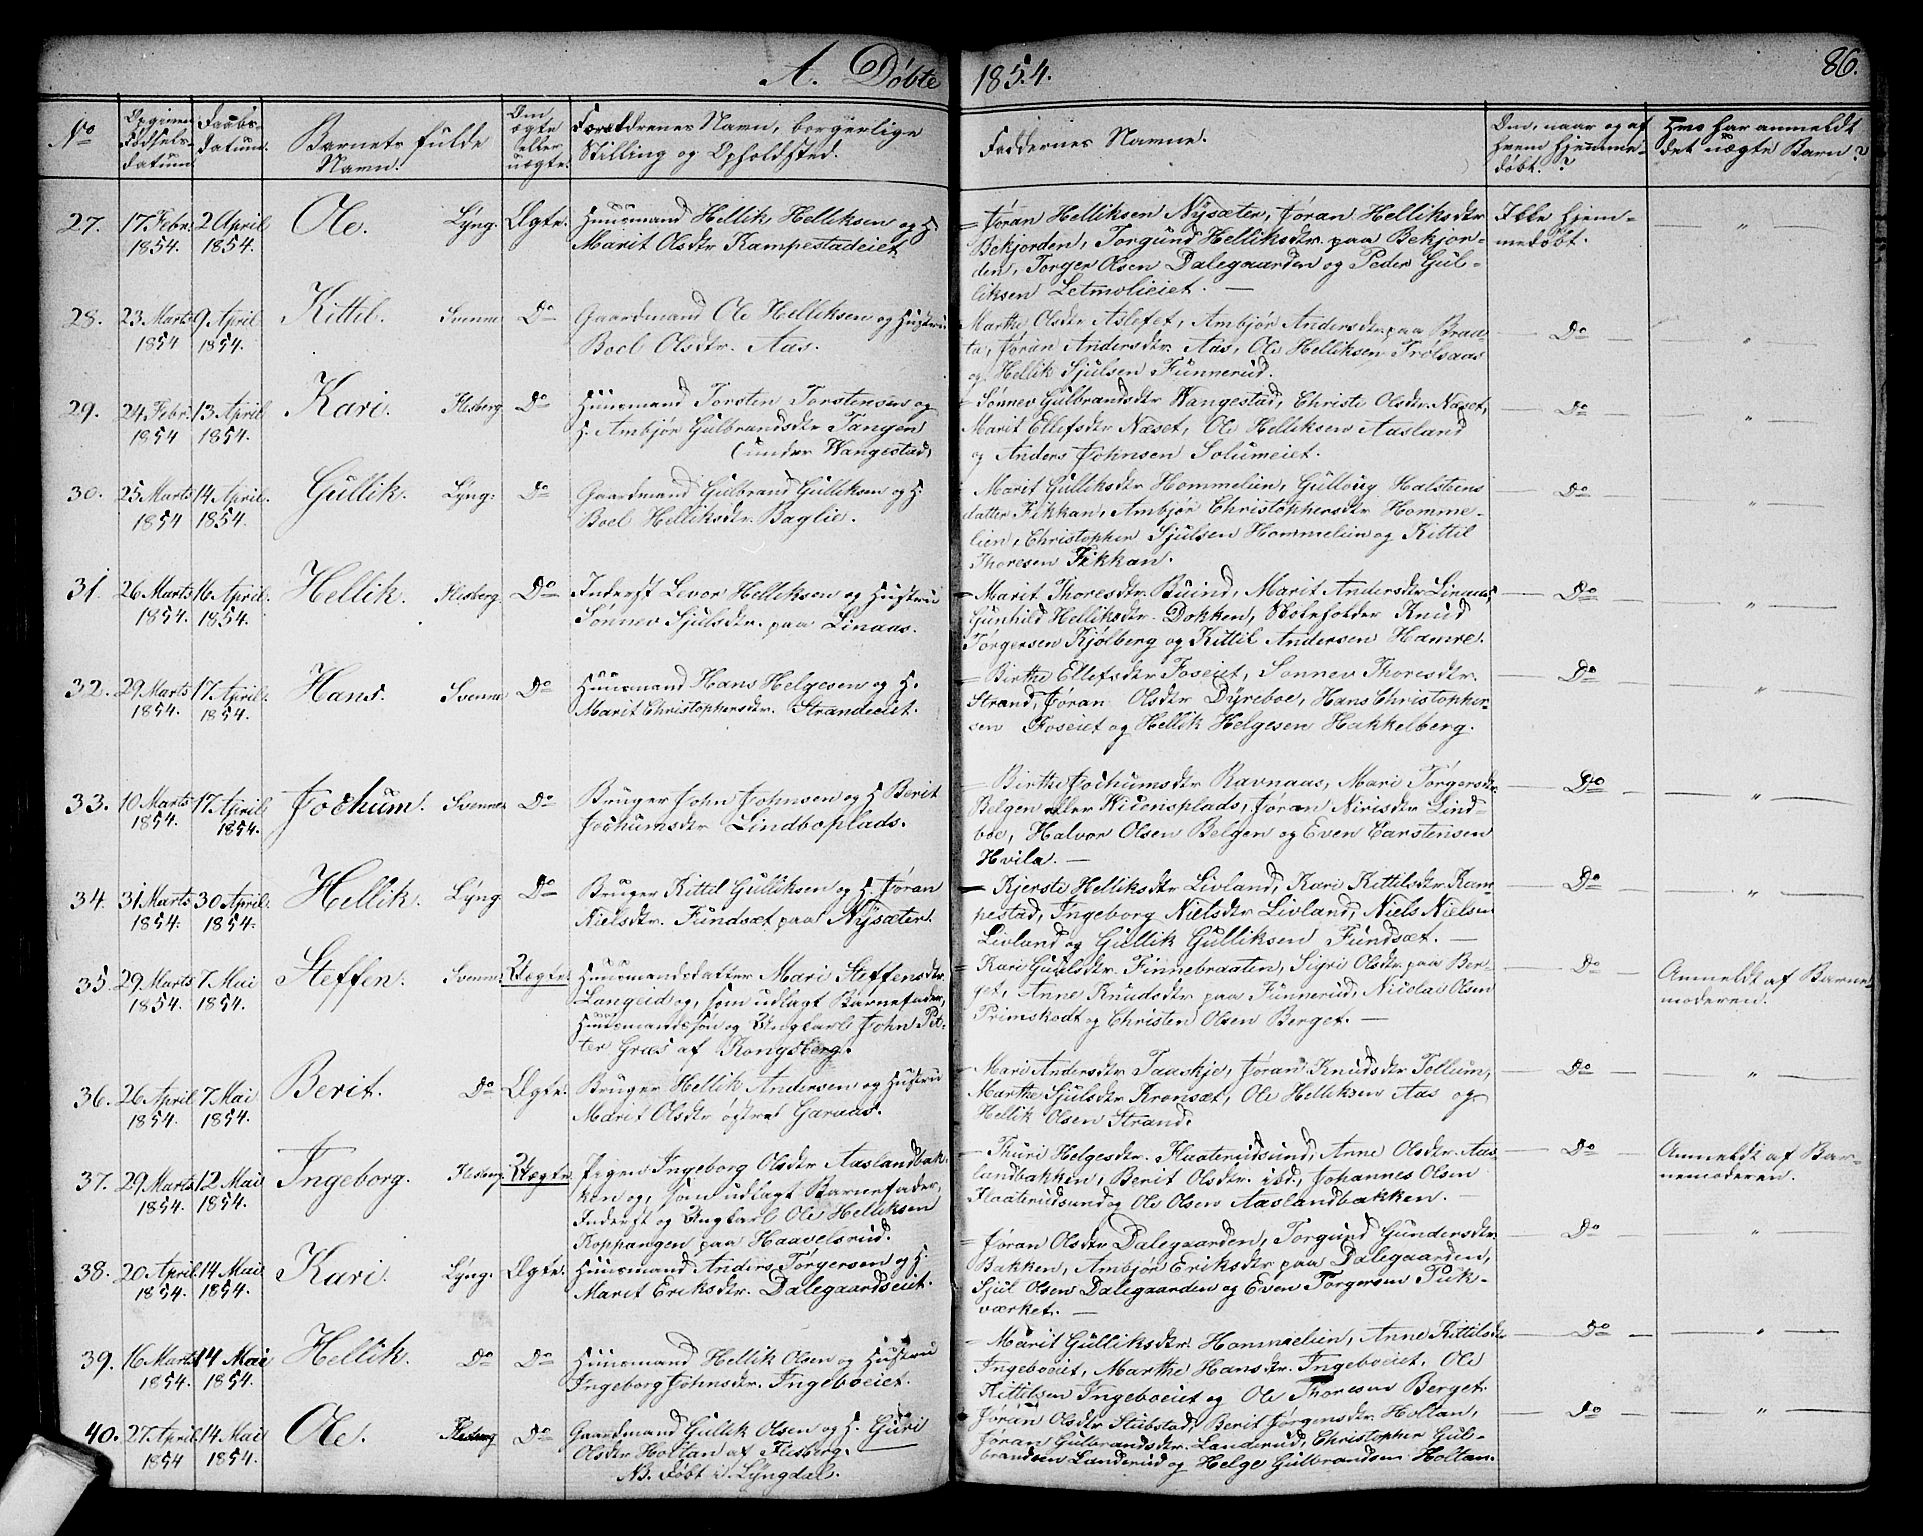 A. Døbte 1854. 86.
No
Opgiven Fødsels-datum.
Daabs-datum.
Barnets fulde Navn.
Om ægte eller uægte.
Forældrenes Navn, borgerlige Stilling og Opholdssted.
Faddernes Navne.
Om, naar og af Hvem hjemme-døbt?
Hvo har anmeldt det uægte Barn?
27. 17 Febr. 1854. 2 April 1854. Ole. Lyng. Ægte.
Huusmand Hellik Helliksen og H.
Marit Olsdtr Kampestadeiet
= Jøran Helliksen Nysæter, Jøran Helliksdtr
Bekjorden, Torgund Helliksdtr. paa Bekjor-
den, Torger Olsen Dalegaarden og Peder Gul-
liksen Letmolieiet. —
Ikke hjem-
medøbt.
— " —
28. 23 Marts 1854 9 April 1854. Kittil. Svenne Do
Gaardmand Ole Helliksen og Hustru
Boel Olsdtr. Aas.
Marthe Olsdtr Aslefet, Ambjør Andersdtr paa Braa-
ta, Jøran Andersdtr. Aas, Ole Helliksen Trolsaas
og Hellik Sjulsen Funnerud.
— Do —
— " —
29. 24 Febr. 1854 13 April 1854. Kari. Flesberg. Do
Huusmand Torsten Torstensen og
H. Ambjør Gulbrandsdtr Tangen
(under Wangestad)
- Sønnev Gulbrandsdtr Wangestad, Christi Olsdtr. Næset,
Marit Ellefsdtr Næset, Ole Helliksen Aasland
og Anders Johnsen Solumeiet.
— Do —
— " —
30. 25 Marts 1854 14 April. 1854. Gullik. Lyng. Do
Gaardmand Gulbrand Gulliksen og H.
Boel Helliksdtr. Baglie.
- Marit Gulliksdtr Hommelien, Gulloug Halsteens
datter Fikkan, Ambjør Christophersdtr Homme-
lien, Christopher Sjulsen Hommelien og Kittil
Thoresen Fikkan.
— Do —
— " —
31. 26 Marts 1854. 16 April. 1854. Hellik. Flesberg. Do
Inderst Levor Helliksen og Hustru
Sønnev Sjulsdtr. paa Linaas.
- Marit Thoresdtr Buind, Marit Andersdtr Linaas,
Gunhild Helliksdtr. Dokken, Skoleholder Knud
Torgersen Kjølberg og Kittil Andersen Hamre.
— Do —
— " —
32. 29 Marts 1854. 17 April. 1854. Hans. Svenne Do
Huusmand Hans Helgesen og H.
Marit Christophersdtr. Strandeiet.
- Birthe Ellefsdtr Foseiet, Sønnev Thoresdtr.
Strand, Jøran Olsdtr Dyreboe, Hans Christopher-
sen Foseiet og Hellik Helgesen Hakkelberg.
— Do —
— " —
33. 10 Marts 1854. 17 April 1854. Jochum. Svenne Do
Bruger John Johnsen og H Berit
Jochumsdtr Lindboplads.
- Birthe Jochumsdtr Ravnaas, Mari Torgersdtr.
Belgen eller Nidorisplads, Jøran Nirisdtr Lind-
boe, Halvor Olsen Belgen og Even Carstensen
Hvila. —
— Do —
— " —
34. 31 Marts 1854. 30 April. 1854. Hellik. Lyng. Do
Bruger Kittil Gulliksen og H. Jøran
Nielsdtr. Fundsæt paa Nysæter.
- Kjersti Helliksdtr Livland, Kari Kittilsdtr Kam-
pestad, Ingeborg Nielsdtr Livland, Niels Nielsen
Livland og Gullik Gulliksen Fundsæt. —
— Do —
— " —
35. 29 Marts 1854. 7 Mai 1854. Steffen. Svenne. Uægte.
Huusmandsdatter Mari Steffensdtr.
Langeid og, som udlagt Barnefader,
Huusmandssøn og Ungkarl John Pet-
ter Græs af Kongsberg.
= Kari Gunlsdtr. Finnebraaten, Sigri Olsdtr. paa Ber-
get, Anne Knudsdtr paa Funnerud, Nicolai Olsen
Primskodt og Christen Olsen Berget. —
— Do
Anmeldt af Barne-
moderen.
36. 26 April 1854. 7 Mai 1854. Berit. Do Ægte.
Bruger Hellik Andersen og Hustru
Marit Olsdtr østre Garaas.
- Mari Andersdtr Taaskje, Jøran Knudsdtr Tollum,
Marthe Sjulsdtr Kronsæt, Ole Helliksen Aas og
Hellik Olsen Strand.
— Do —
— " —
37. 29 Marts 1854. 12 Mai 1854. Ingeborg. Flesberg. Uægte
Pigen Ingeborg Olsdtr Aaslandbak-
ken og, som udlagt Barnefader,
Inderst og Ungkarl Ole Helliksen
Koppangen paa Haavelsrud.
- Thuri Helgesdtr. Flaaterudsund, Anne Olsdtr. Aas-
landbakken, Berit Olsdtr. ibd., Johannes Olsen
Flaaterudsund og Ole Olsen Aaslandbakken. —
— Do —
Anmeldt af Bar-
nemoderen.
38. 20 April 1854. 14 Mai 1854. Kari. Lyng. Ægte.
Huusmand Anders Torgersen og H.
Marit Eriksdtr. Dalegaardseiet.
= Jøran Olsdtr Dalegaarden, Torgund Gundersdtr.
Bakken, Ambjør Eriksdtr paa Dalegaarden,
Sjul Olsen Dalegaarden og Even Torgersen Puk-
værket. —
— Do
— " —
39. 16 Marts 1854. 14 Mai 1854. Hellik. Do Do
Huusmand Hellik Olsen og Hustru
Ingeborg Johnsdtr. Ingeboeiet.
- Marit Gulliksdtr. Hommelien, Anne Kittilsdtr
Ingeboeiet, Marthe Hansdtr. Ingeboeiet, Ole
Kittilsen Ingeboeiet og Ole Thoresen Berget.
— Do —
— " —
40. 27 April 1854 14 Mai 1854. Ole. Flesberg Do
Gaardmand Gullik Olsen og H. Guri
Olsdtr Holtan af Flesberg.
NB. Døbt i Lyngdal.
Jøran Olsdtr Stubstad, Berit Jørgensdtr. Holtan,
Jøran Gulbrandsdtr. Landerud, Christopher Gul-
brandsen Landerud og Helge Gulbrandsen Holtan.
— Do —
— " —